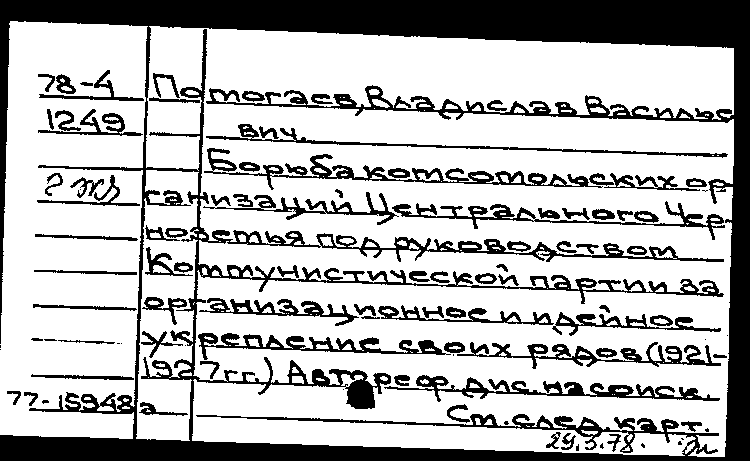 78-4 Помогаев, Владислав Василье
1249 вич.
Борьба комсомольских ор-
2 экз ганизаций Центрального Чер-
ноземья под руководством
Коммунистической партии за
организационное и идейное
укрепление своих рядов (1921-
1927 гг.). Автореф. дис. на соиск.
77-15948а См. след. карт.
29.3.78.